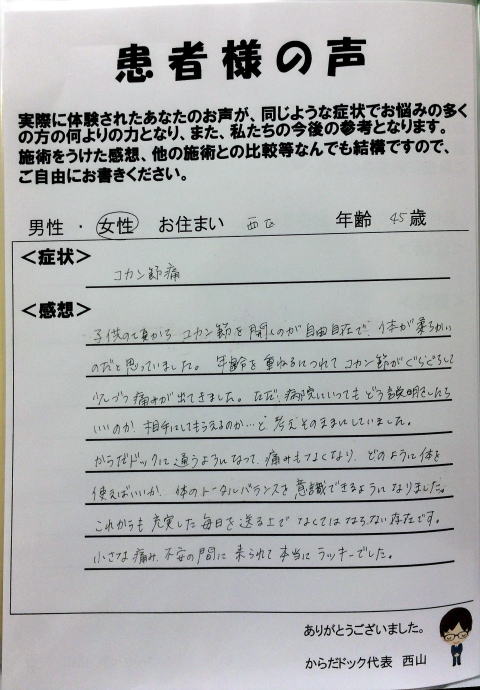 患者様の声
実際に体験されたあなたのお声が、同じような症状でお悩みの多く
の方の何よりの力となり、また、私たちの今後の参考となります。
施術をうけた感想、他の施術との比較等なんでも結構ですので、
ご自由にお書きください。
男性 ・ 女性 お住まい 西区 年齢 45歳
<症状>
コカン節痛
<感想>
子供の頃から コカン節を開くのが自由自在で、体が柔らかい
のだと思っていました。 年齢を重ねるにつれて コカン節がぐらぐらして
少しづつ痛みが出てきました。ただ、病院にいっても どう説明をしたら
いいのか、相手にしてもらえるのか…と 考えそのままにしていました。
からだドックに通うようになって、痛みもなくなり、どのように体を
使えばいいか、体のトータルバランスを意識できるようになりました。
これからも 充実した毎日を送る上で なくてはならない存在です。
小さな痛み、不安の間に 来られて本当に ラッキーでした。
ありがとうございました。
からだドック代表 西山